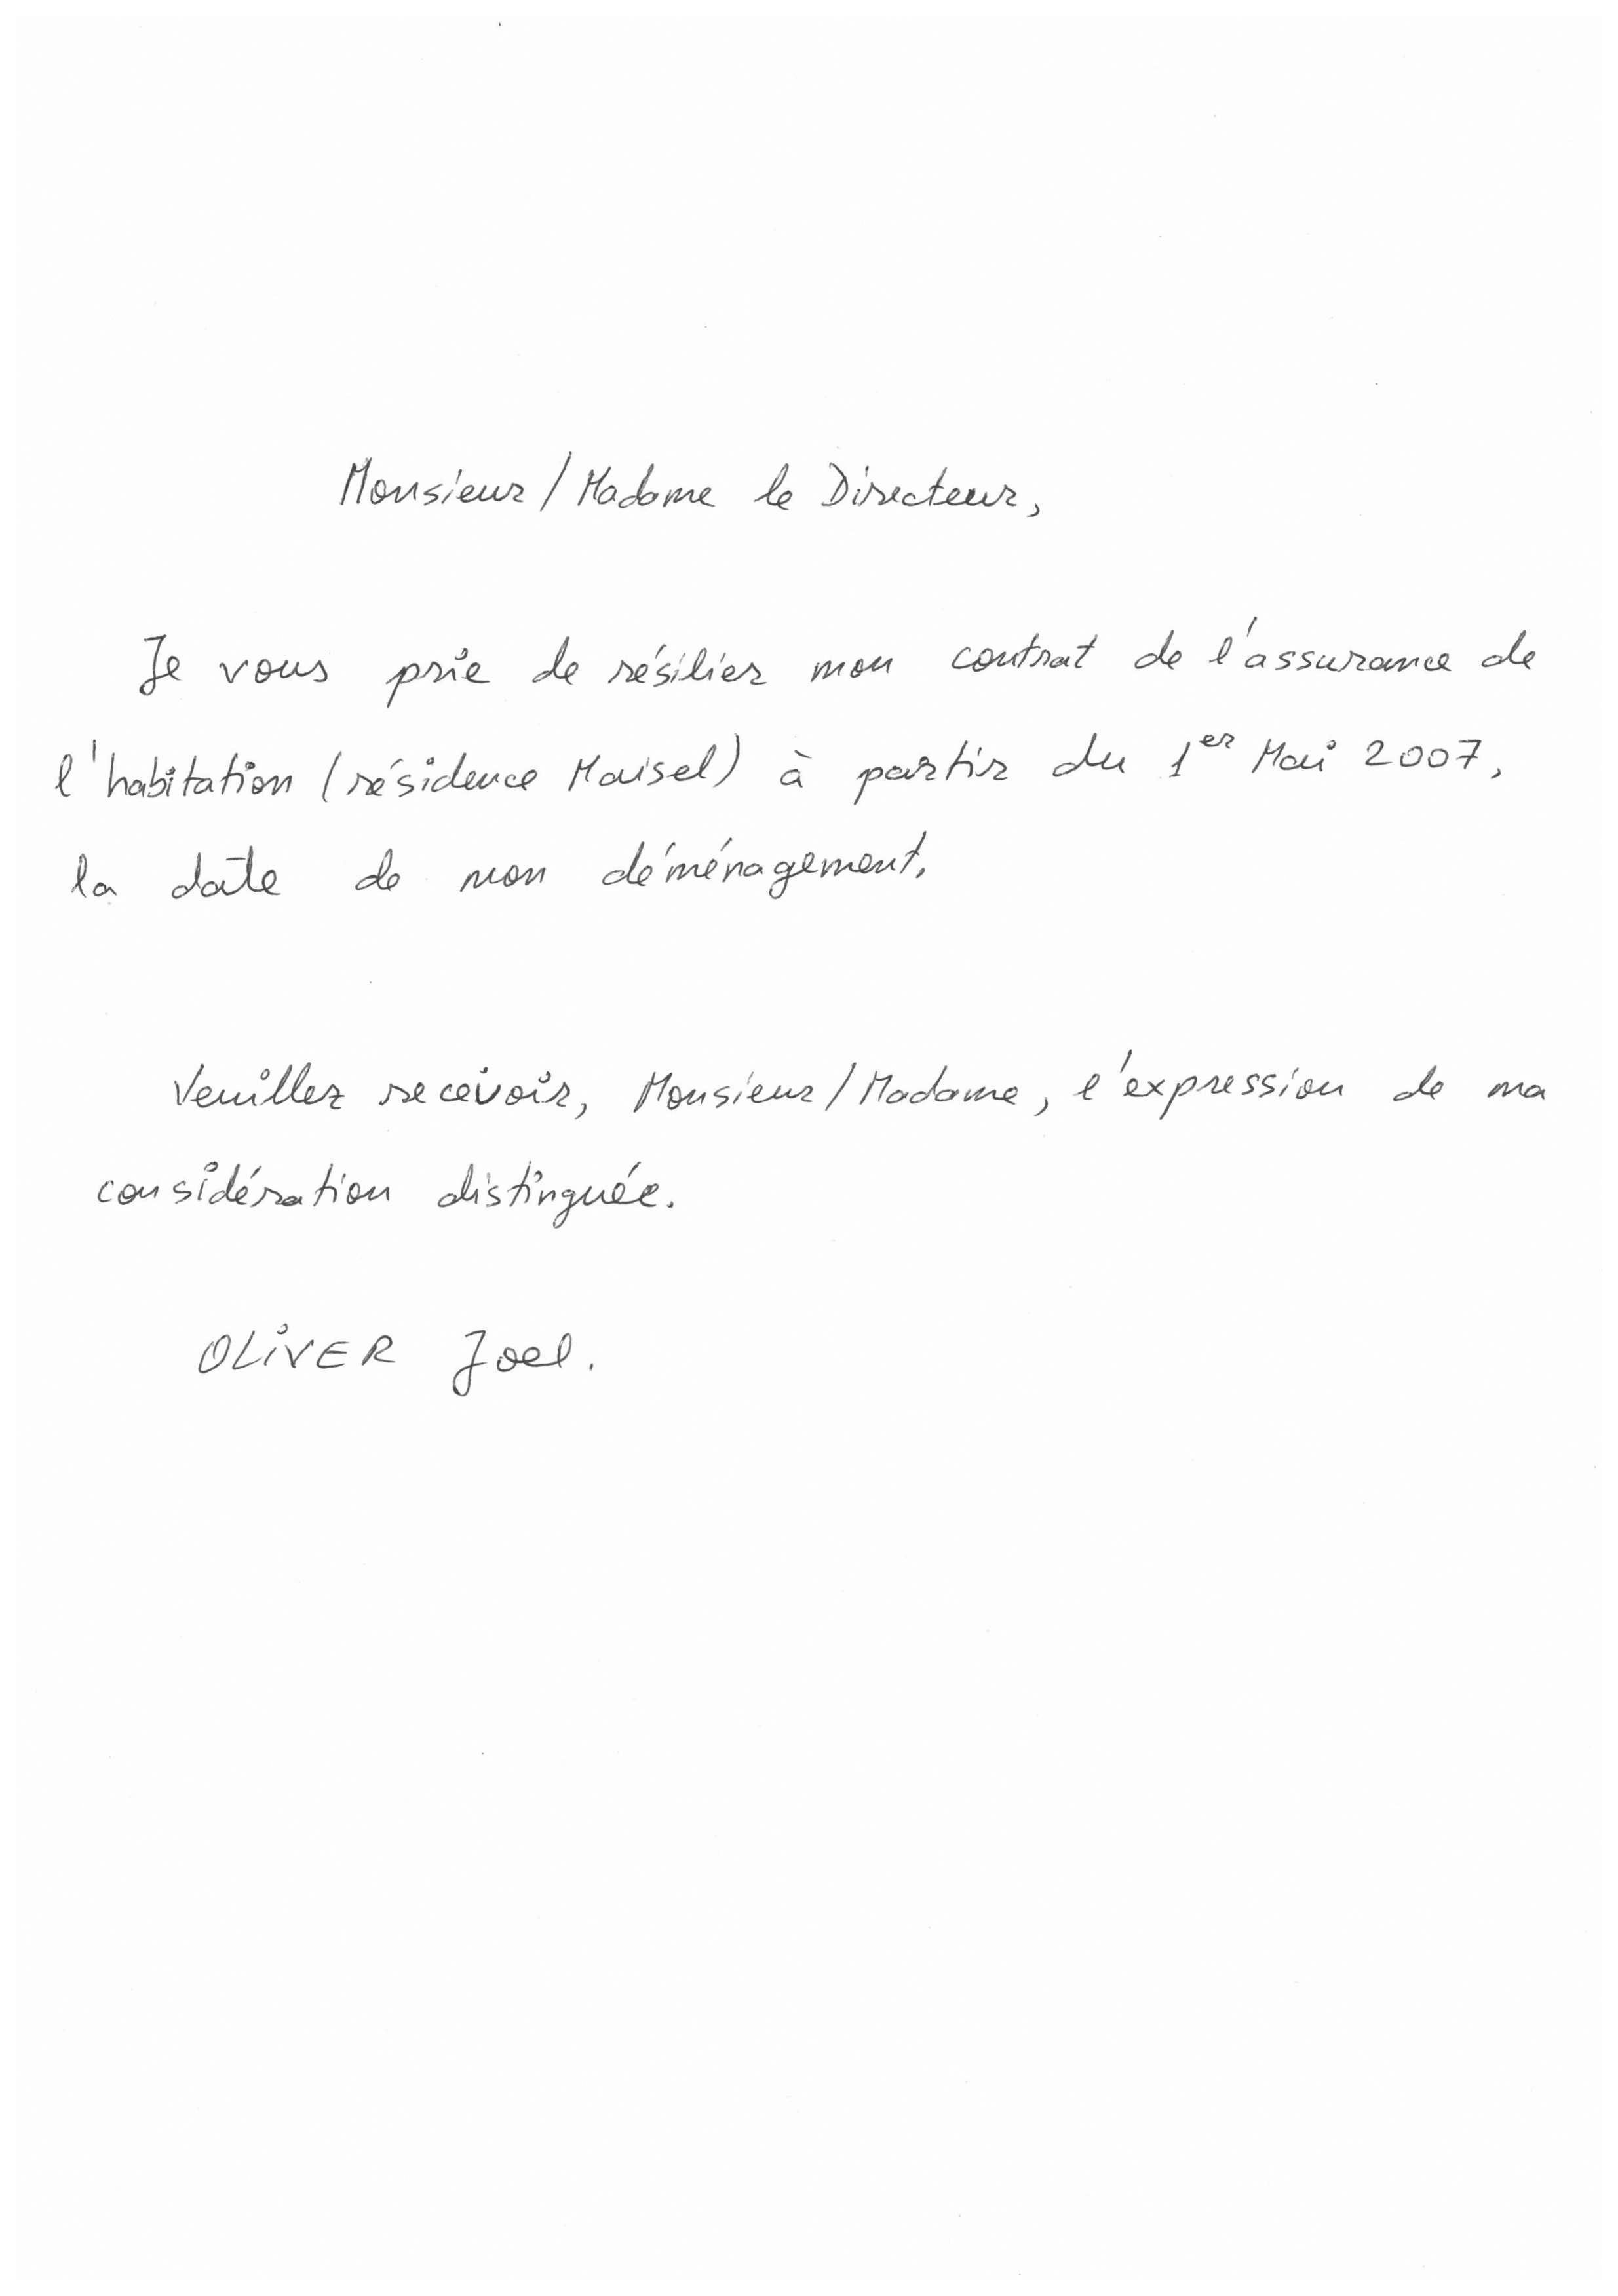 Monsieur / Madame le Directeur,
Je vous prie de résilier mon contrat de l'assurance de
l'habitation (résidence Maisel) à partir du 1er Mai 2007,
la date de mon déménagement.
Veuillez recevoir, Monsieur / Madame, l'expression de ma
considération distinguée.
OLIVER Joel.